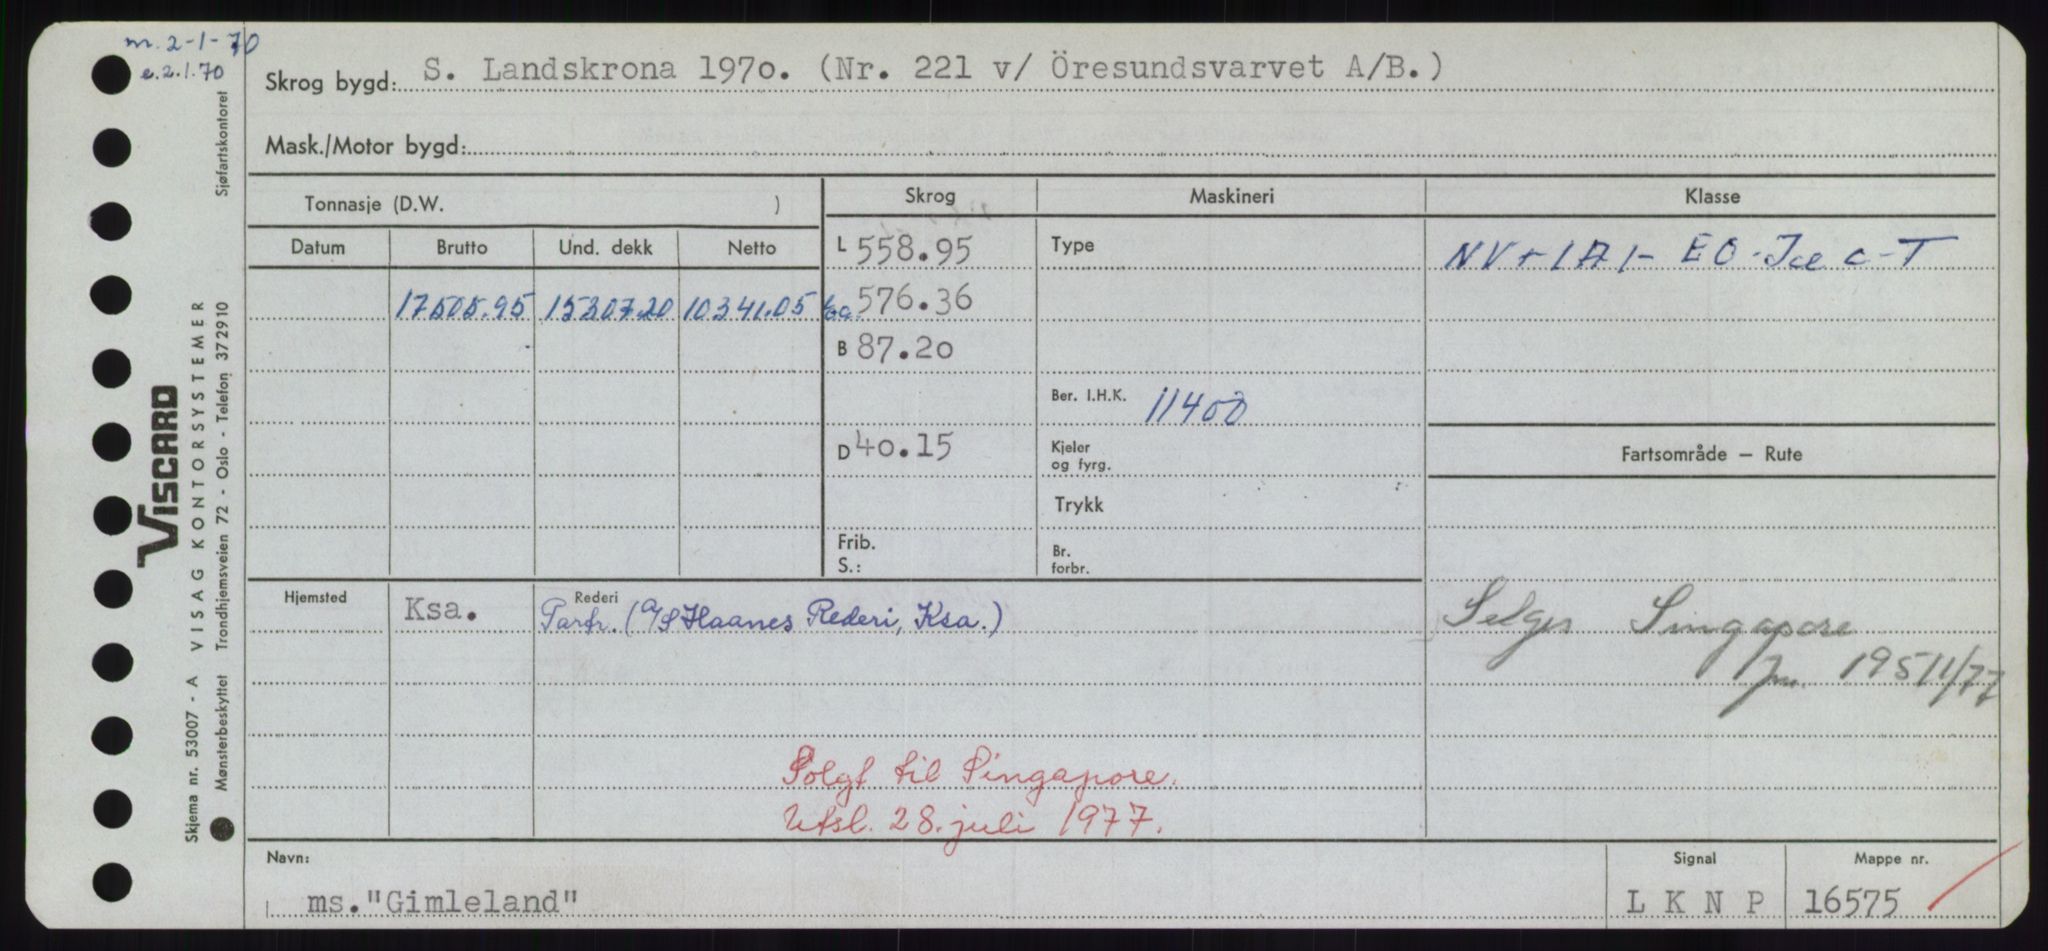 m. 2-1-70
e.2.1.70
Skrog bygd: S. Landskrona 1970. (Nr. 221 v/ Öresundsvarvet A/B.)
Mask./Motor bygd:
Tonnasje (D.W. )
Skrog
Maskineri
Klasse
Datum
Brutto
Und. dekk
Netto
L 558.95
Type
NV+1A1- EO-Ice C-T
17505.95 15307.20 10341.05
576.36
B 87.20
Ber. I.H.K. 11400
D 40.15
Kjeler
og fyrg.
Fartsområde – Rute
Trykk
Frib.
S.:
Br.
forbr.
Hjemsted Ksa.
Rederi
Partr. (A/S Haanes Rederi, Ksa.)
Selges Singapore
Jnr. 1951/77
Solgt til Singapore.
Utsl. 28. juli 1977.
Navn:
ms."Gimleland"
Signal
L K N P
Mappe nr.
16575
VISCARD
VISAG KONTORSYSTEMER
Skjema nr. 53007 - A
Mønsterbeskyttet Trondhjemsveien 72 - Oslo - Telefon 372910 Sjøfartskontoret